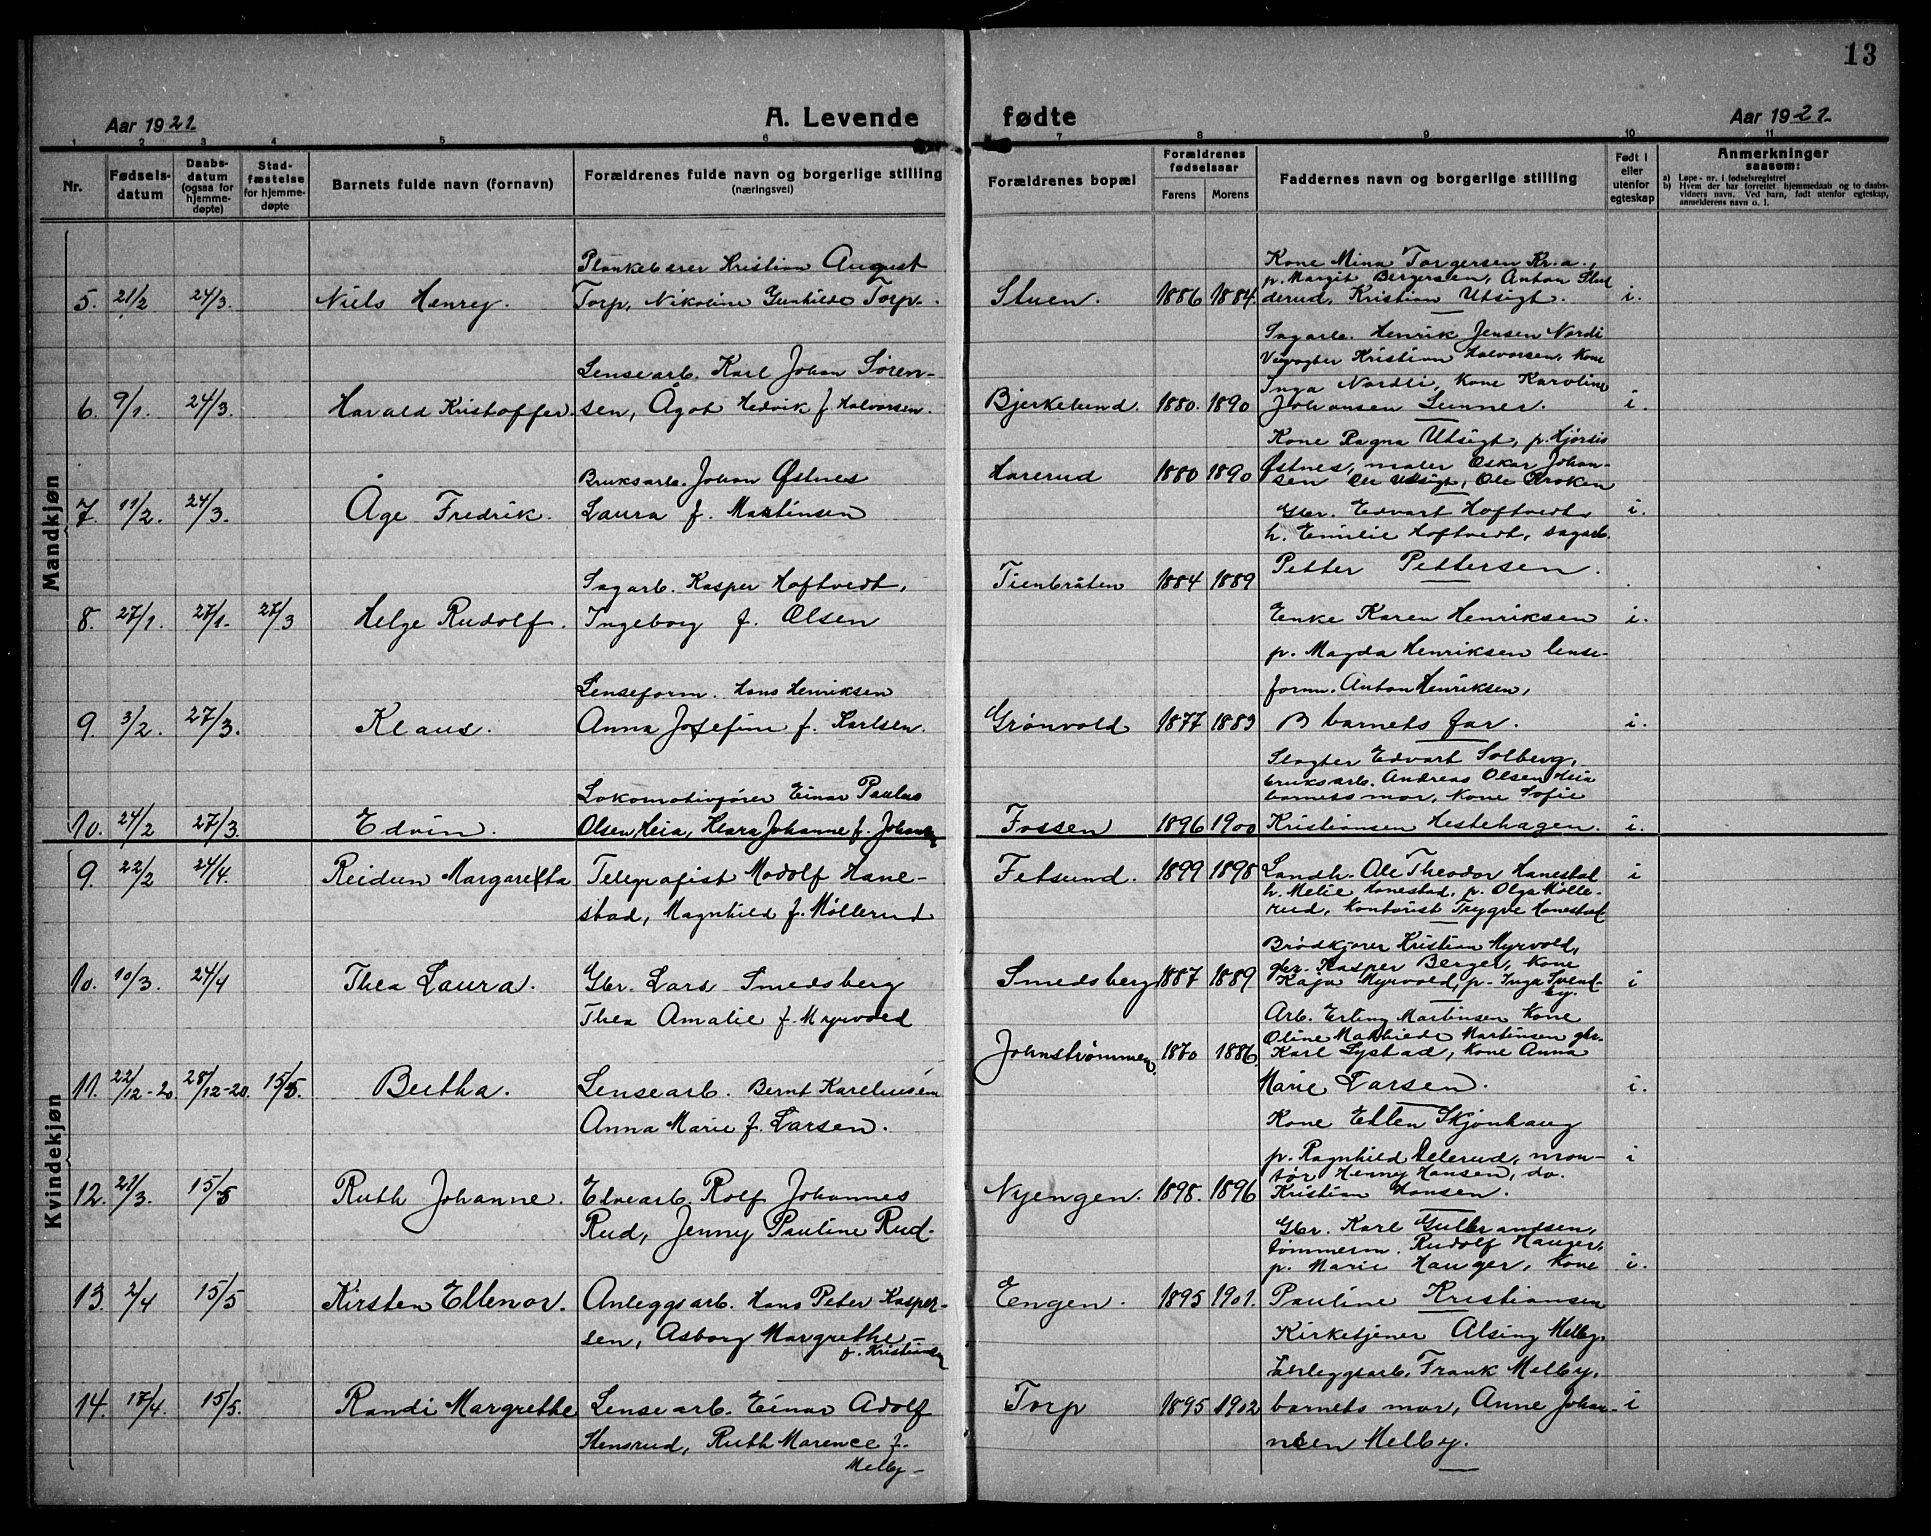 13
Aar 1921.
A. Levende fødte
Aar 1921.
1 2 3 4 5 6 7 8 9 10 11
Nr.
Fødsels-
datum
Daabs-
datum
(ogsaa for
hjemme-
døpte)
Stad-
fæstelse
for hjemme-
døpte
Barnets fulde navn (fornavn)
Forældrenes fulde navn og borgerlige stilling
(næringsvei)
Forældrenes bopæl
Forældrenes
fødselsaar
Farens Morens
Faddernes navn og borgerlige stilling
Født i
eller
utenfor
egteskap
Anmerkninger
saasom:
a) Løpe-nr. i fødselsregistret
b) Hvem der har forrettet hjemmedaab og to daabs-
vidners navn. Ved barn, født utenfor egteskap,
anmelderens navn o. l.
Mandkjøn
5. 21/2 24/3. Niels Henry.
Plankebærer Kristian August
Torp, Nikoline Gunhilde Torp.
Stuen. 1886 1884.
Kone Mina Torgersen Kr.a.,
p. Margit Bergersen, Anton Slud
derud, Kristian Utsigt. i.
6. 9/1. 24/3. Harald Kristoffer.
Lensearb. Karl Johan Søren-
sen, Ågot Hedvik f. Halvorsen.
Bjerkelund. 1880. 1890
Sagarb. Henrik Jensen Nordli
Veivogter Kristian Halvorsen, Kone
Inga Nordli, Kone Karoline
Johansen Sunner. i.
7. 11/2. 24/3. Åge Fredrik.
Bruksarb. Johan Østnes
Laura f. Martinsen
Harerud 1880 1890
Kone Ragna Utsigt, p. Hjørdis
Østnes, maler Oskar Johan-
sen Utsigt, Ole Kroken
i.
8. 27/1. 27/1. 27/3 Helge Rudolf.
Sagarb. Kasper Hoftvedt,
Ingeborg f. Olsen
Tienbråten 1884 1889
Gbr. Edvart Hoftvedt,
h. Emilie Hoftvedt, sagarb.
Petter Pettersen.
i.
9. 3/2. 27/3. Klaus.
Lenseform. Hans Henriksen
Anna Josefine f. Karlsen.
Grønvold 1877 1883
Enke Karen Henriksen
p. Magda Henriksen lense-
form. Anton Henriksen,
barnets far. i.
10. 24/2 27/3. Edvin.
Lokomotivfører Einar Paulus
Olsen Heia, Klara Johanne f. Johansen
Fossen 1896 1900
Slagter Edvart Solberg,
bruksarb. Andreas Olsen Heia
barnets mor, Kone Sofie
Kristiansen Hestehagen. i.
Kvindekjøn
9. 22/2 24/4. Reidun Margaretha
Telegrafist Modolf Hane-
stad, Magnhild f. Møllerud
Fetsund. 1899 1898
Landh. Ole Theodor Hanestad
h. Melie Hanestad, p. Olga Mølle-
rud, Kontorist Trygve Hanestad
i
10. 10/3. 24/4 Thea Laura.
Gbr. Lars Smedsberg
Thea Amalie f. Myrvold
Smedsberg 1887 1889
Brødkjører Kristian Myrvold,
gbr. Kasper Berger, Kone
Kaja Myrvold, p. Inga Svend-
by. i
11. 22/12-20 28/12-20. 15/5. Bertha.
Lensearb. Bernt Kareliusen
Anna Marie f. Larsen.
Johnstrømmen. 1870 1886
Arb. Erling Martinsen Kone
Oline Mathilde Martinsen gbr.
Karl Systad, Kone Anna
Marie Larsen. i.
12. 21/3. 15/5 Ruth Johanne.
Elvearb. Rolf Johannes
Rud, Jenny Pauline Rud.
Nyengen. 1898. 1896
Kone Ellen Skjønhaug
p. Ragnhild Ullerud, mon-
tør Henny Hansen, do.
Kristian Hansen. i
13. 2/4 15/5 Kirsten Ellenor.
Anleggsarb. Hans Peter Kasper-
sen, Asborg Margrethe
f. Kristiansen
Engen. 1895 1901.
Gbr. Karl Gulbrandsen,
tømmerm. Rudolf Hauger,
p. Marie Hauger, Kone
Pauline Kristiansen i.
14. 17/4. 15/5. Randi Margrethe
Lensearb. Einar Adolf
Stensrud, Ruth Marence f.
Melby-
Torp 1895 1902
Kirketjener Alsing Melby,
Anleggsarb. Frank Melby,
barnets mor, Anne Johan-
nesen Melby. i